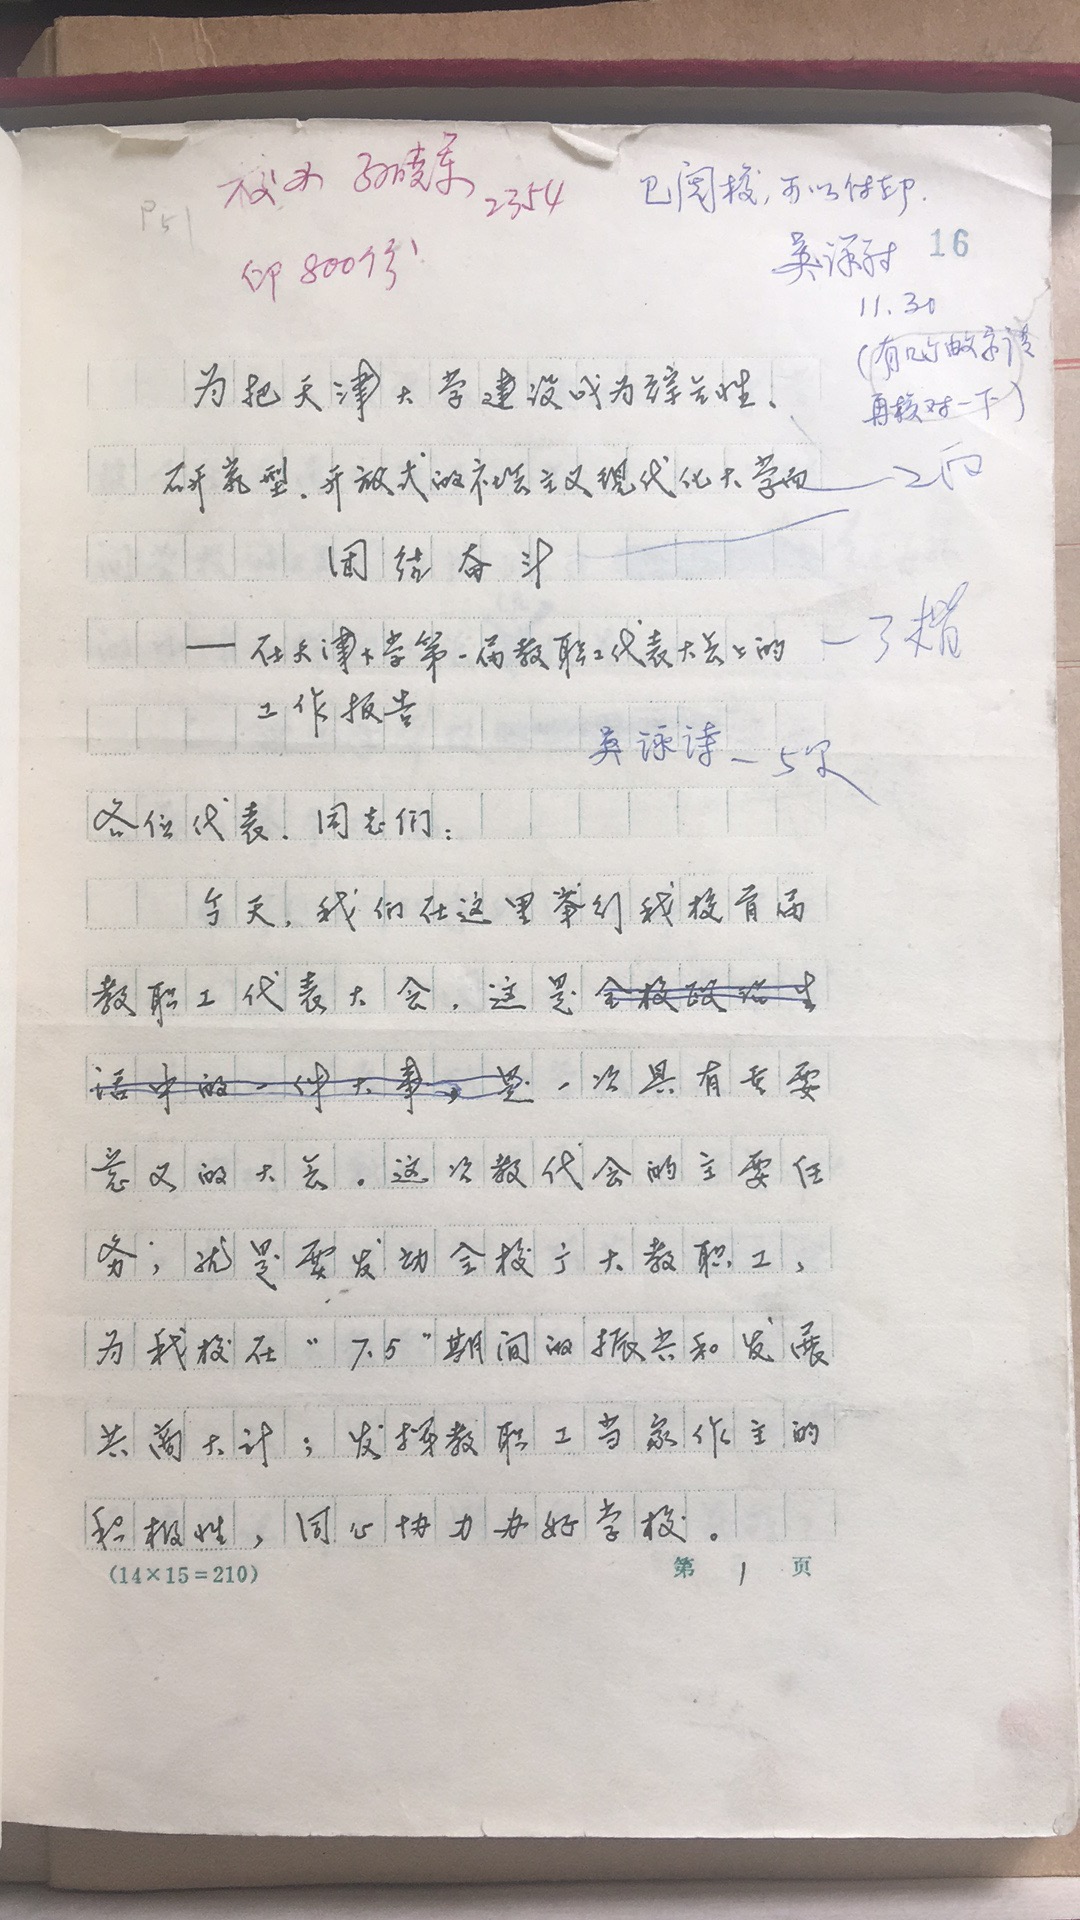 校办 孙晓东 2354
P51
印800份
已阅校,可以付印.
吴咏诗
16
11.30
(有几个的字请
再核对一下)
为把天津大学建设成为综合性、
研究型、开放式的社会主义现代化大学而 —2宋
团结奋斗
——在天津大学第一届教职工代表大会上的 —3楷
工作报告
吴咏诗 —5宋
各位代表、同志们:
今天,我们在这里举行我校首届
教职工代表大会,这是全校政治生
活中的一件大事,是一次具有重要
意义的大会。这次教代会的主要任
务;就是要发动全校广大教职工,
为我校在“7.5”期间的振兴和发展
共商大计;发挥教职工当家作主的
积极性,同心协力办好学校。
(14×15=210)
第 1 页